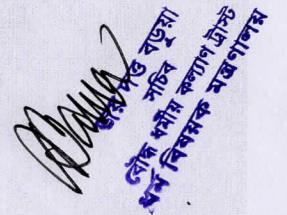 দত্ত বড়ুয়া
সচিব
বৌদ্ধ ধর্মীয় কল্যাণ ট্রাস্ট
ধর্ম বিষয়ক মন্ত্রণালয়